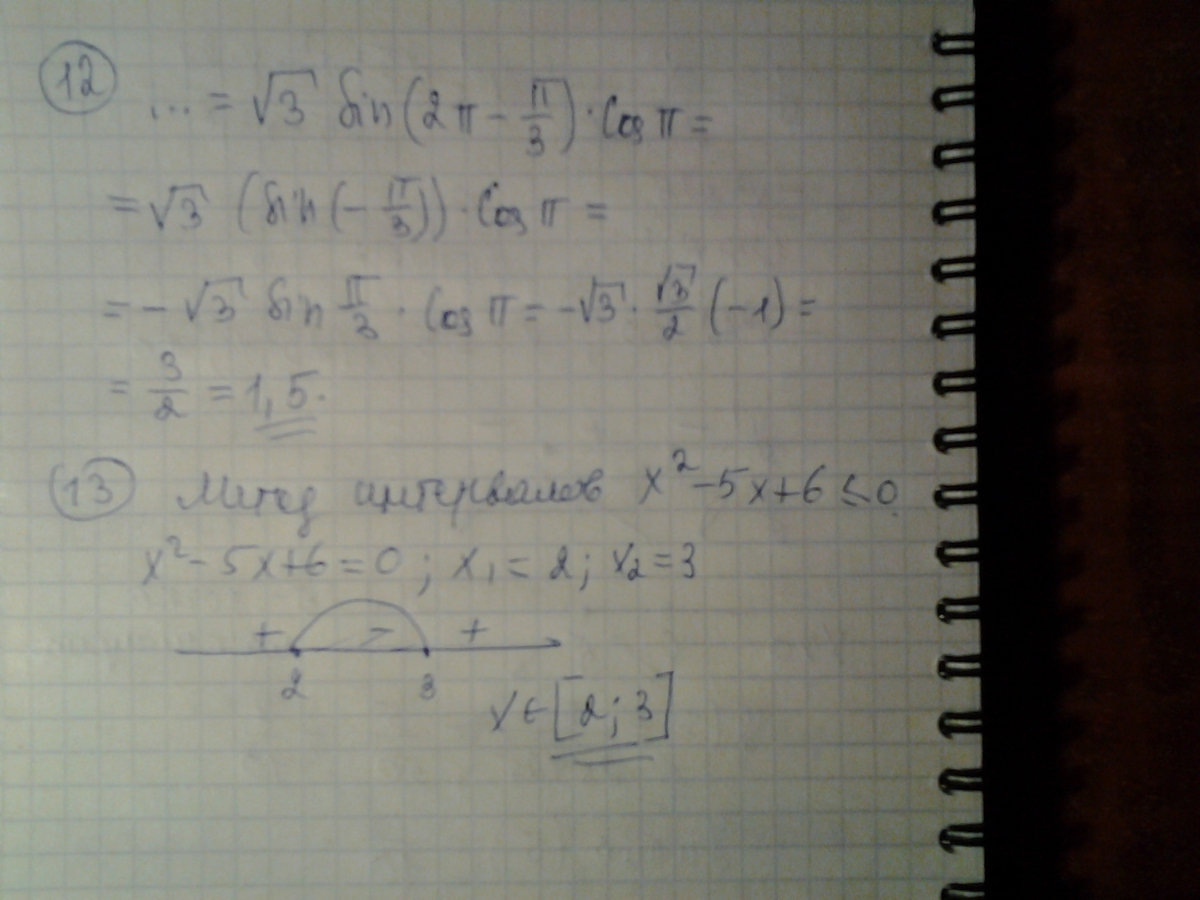 12 ... = √3 sin(2π - π/3) · cos π =
= √3 (sin(-π/3)) · cos π =
= - √3 sin π/3 · cos π = -√3 · √3/2 (-1) =
= 3/2 = 1,5.
13 Метод интервалов x² - 5x + 6 ≤ 0
x² - 5x + 6 = 0; x₁ = 2; x₂ = 3
+ - +
2 3
x ∈ [2; 3]